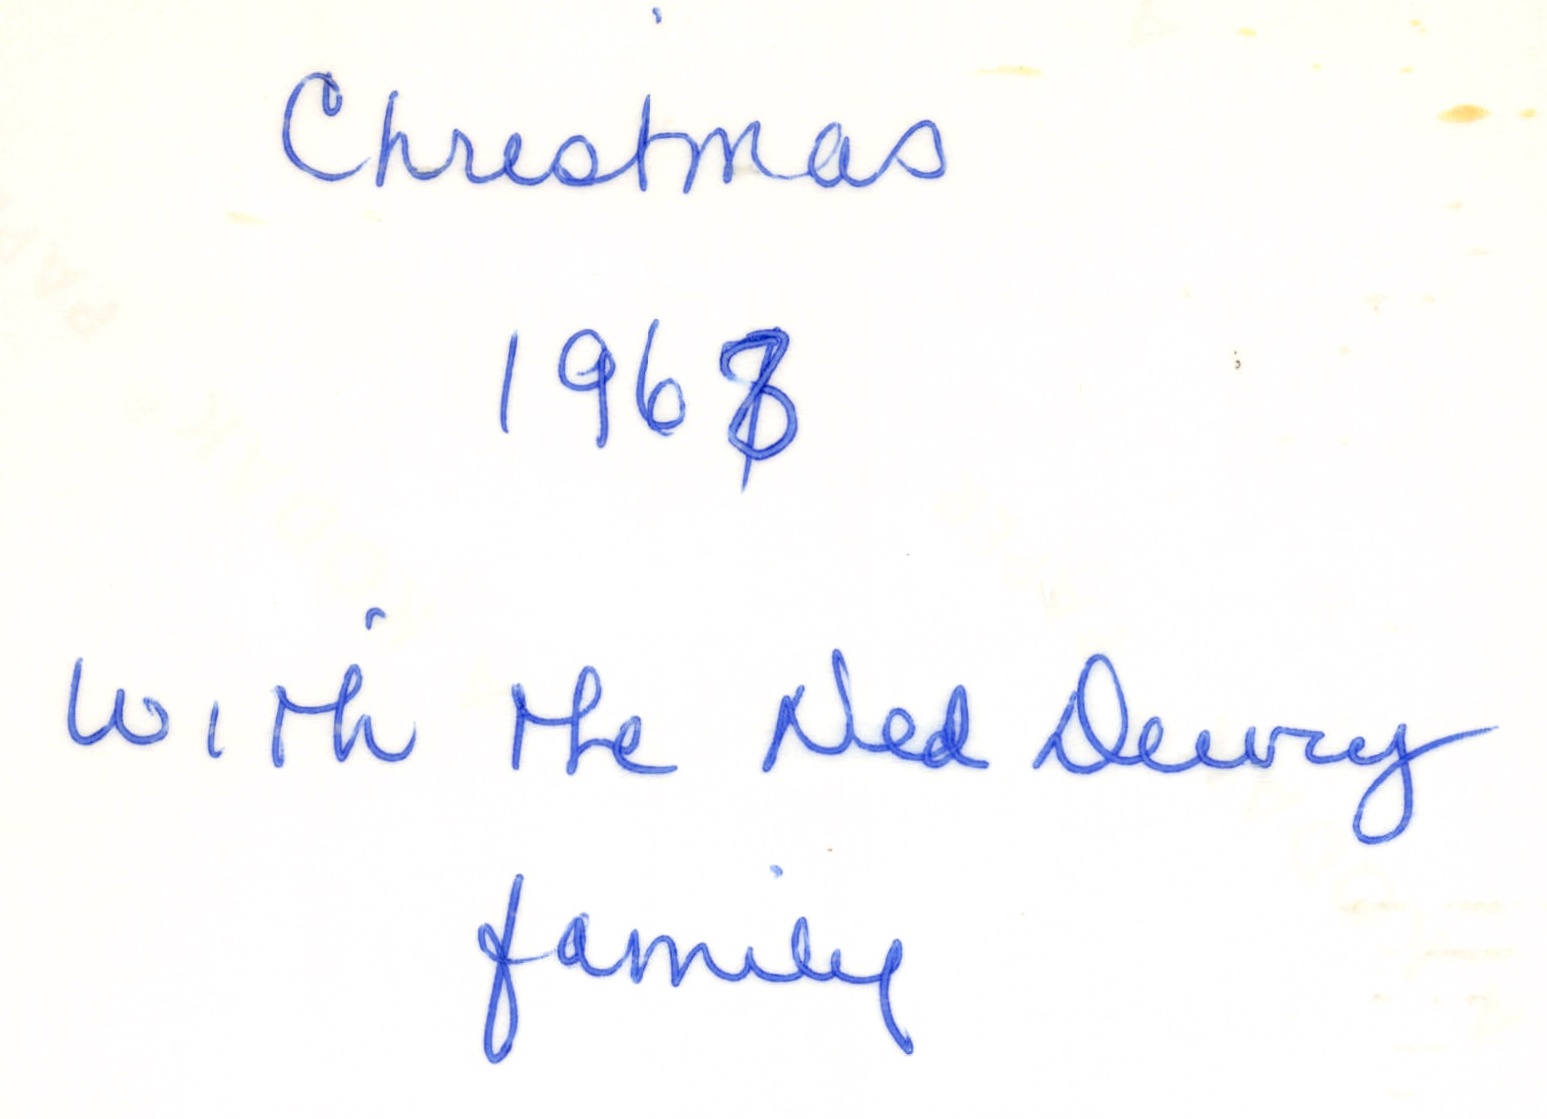 Christmas
1968
with the Ned Dewry
family